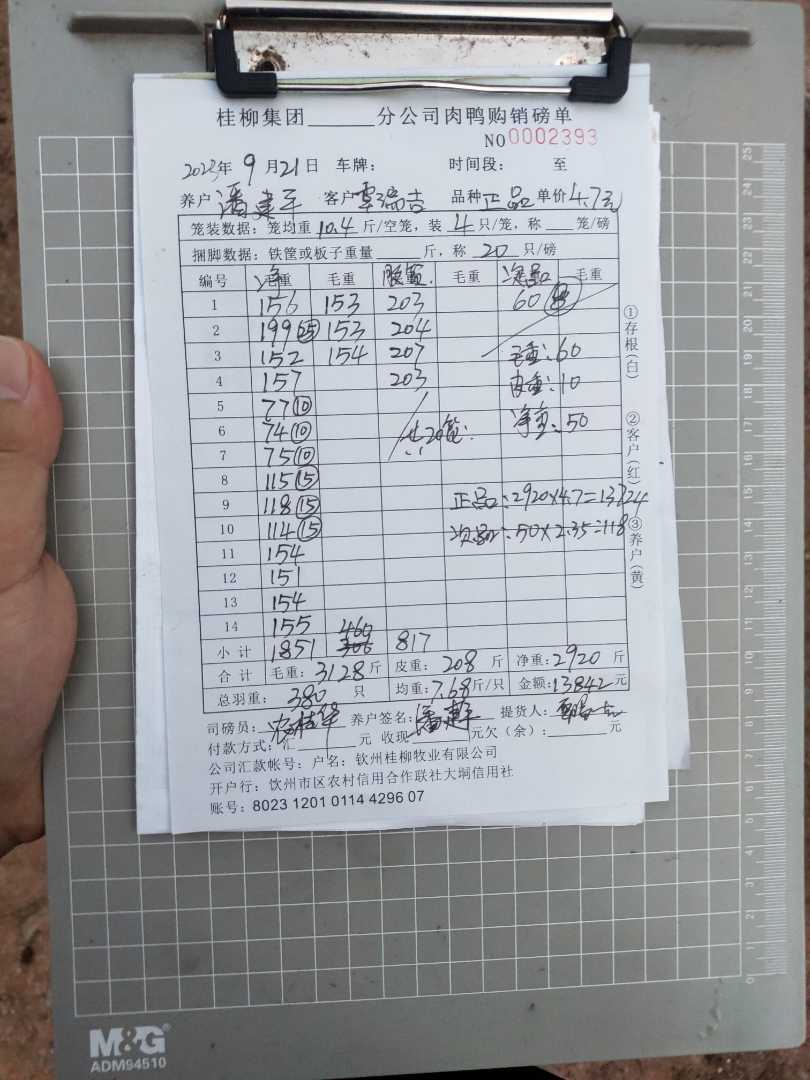 桂柳集团______分公司肉鸭购销磅单
NO 0002393
2023年 9 月 21 日 车牌： 时间段： 至
养户 潘建平 客户 覃瑞吉 品种 正品 单价 4.7元
笼装数据：笼均重 10.4 斤/空笼，装 4 只/笼，称 ___ 笼/磅
捆脚数据：铁筐或板子重量______斤，称 20 只/磅
编号 毛重 毛重 胶筐 毛重 次品 毛重
1 156 153 203 60 ⑧
2 199 ㉕ 153 204
3 152 154 207 毛重：60
4 157 203 皮重：10
5 77 ⑩
6 74 ⑩ 共20筐 净重：50
7 75 ⑩
8 115 ⑮
9 118 ⑮ 正品：2920×4.7=13724
10 114 ⑮ 次品：50×2.35=118
11 154
12 151
13 154
14 155
小计 1851 460 817
合计 毛重：3128 斤 皮重：208 斤 净重：2920 斤
总羽重： 380 只 均重：7.68 斤/只 金额：13842 元
司磅员： 养户签名：潘建平 提货人：
付款方式：汇______元 收现______元欠（余）：______元
公司汇款帐号：户名：钦州桂柳牧业有限公司
开户行：钦州市区农村信用合作联社大垌信用社
账号：8023 1201 0114 4296 07
①存根（白）
②客户（红）
③养户（黄）
25
20
15
10
5
0
M&G
ADM94510